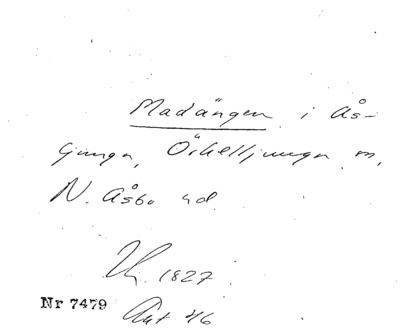 Madängen i Ås-
ljunga, Örkelljunga sn,
N. Åsbo hd.
1827.
Nr 7479
Akt 46